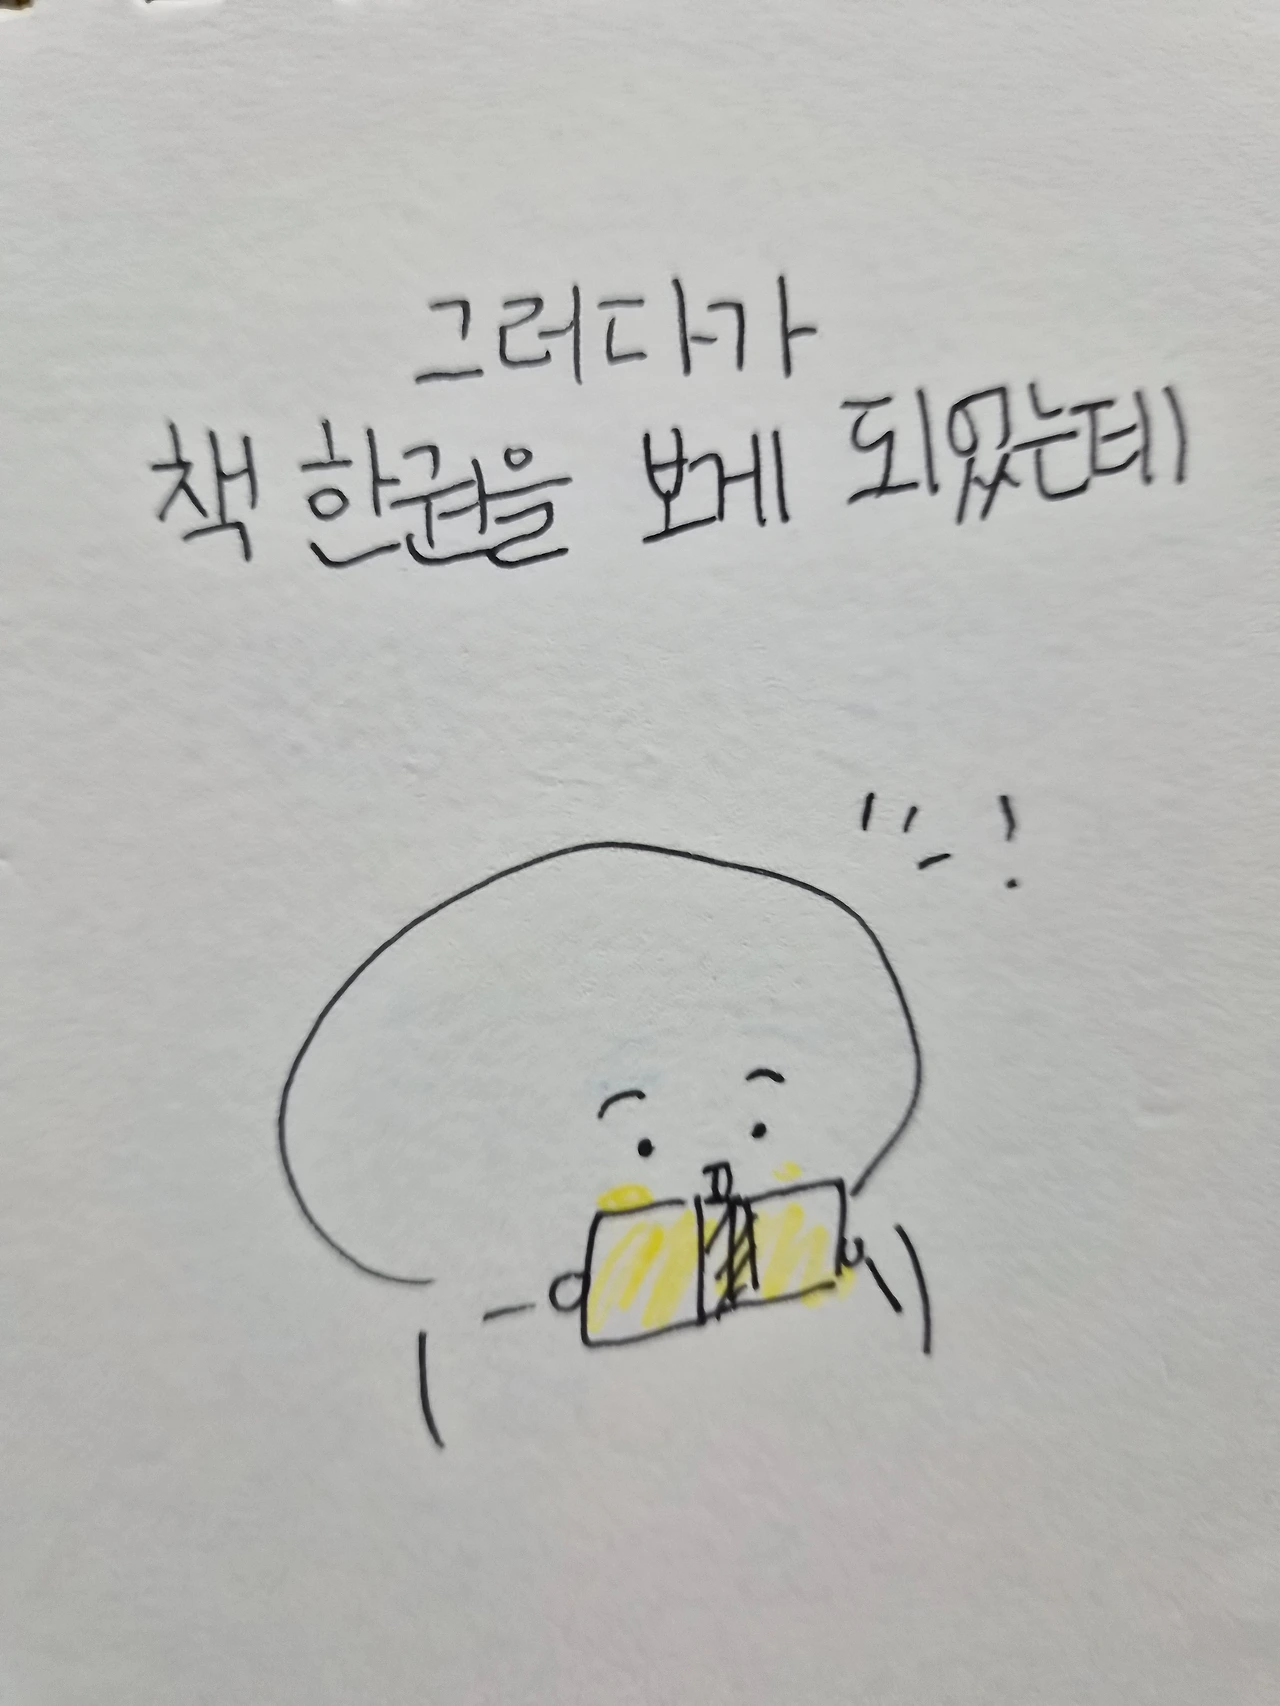 그러다가
책 한권을 보게 되었는데
!